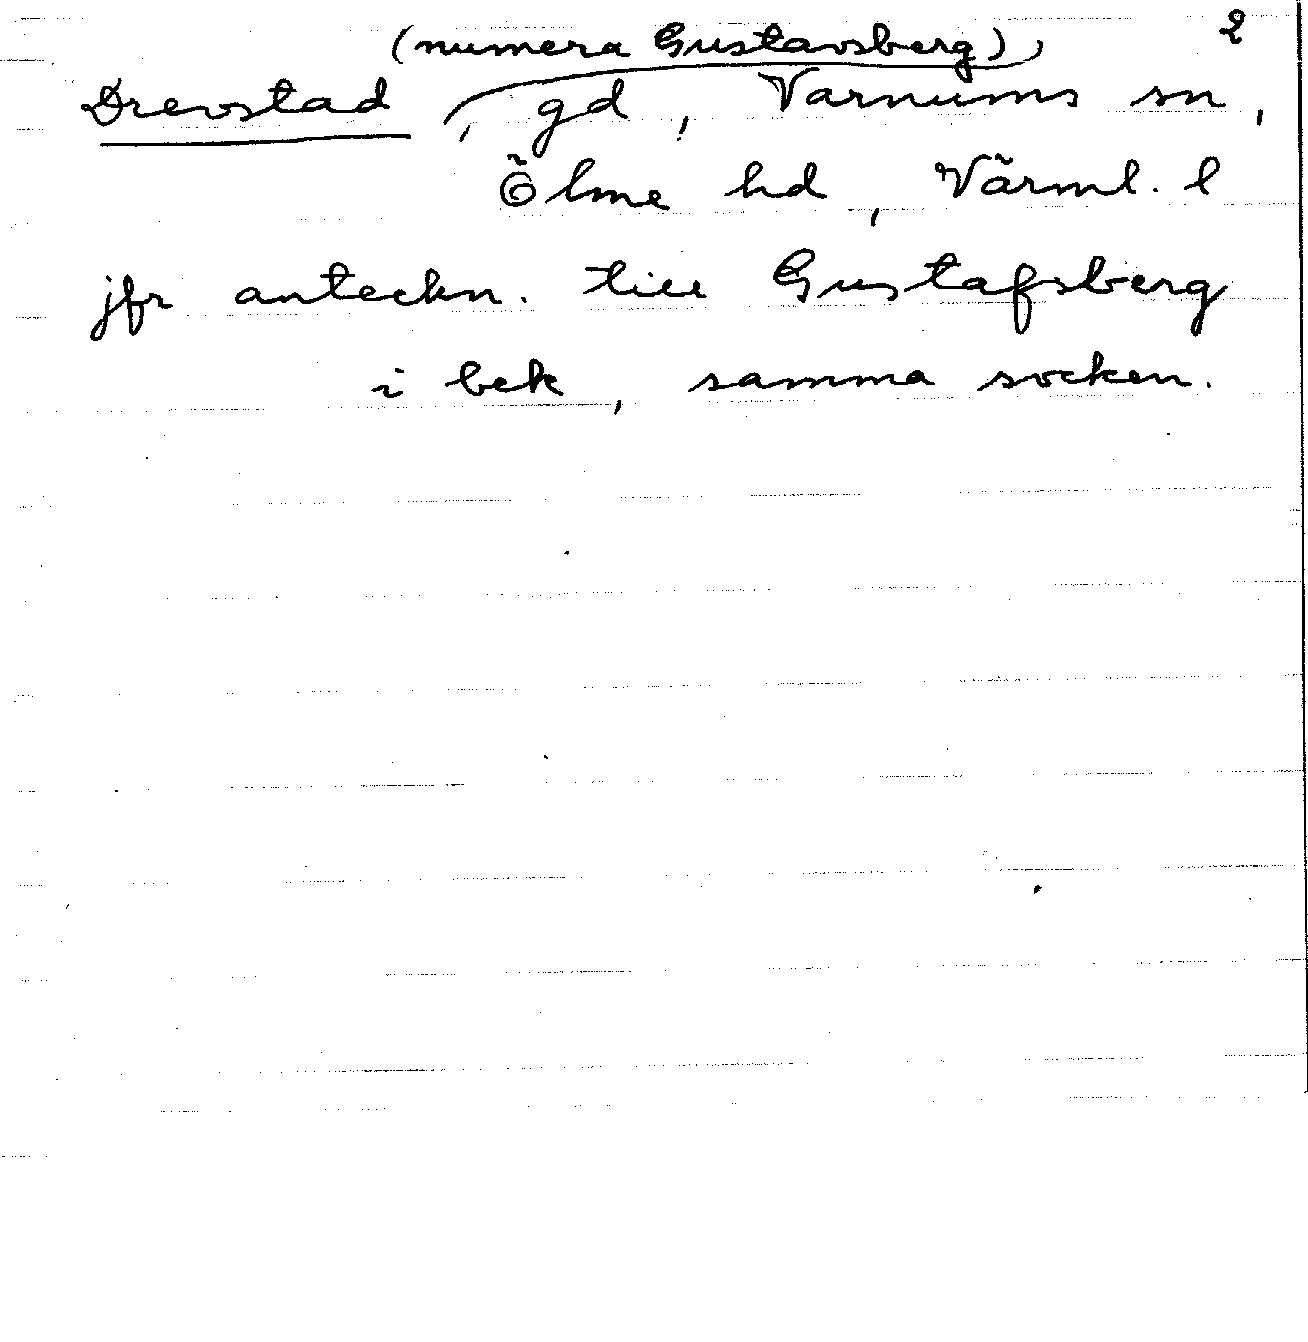 (numera Gustavsberg), 2
Drevstad, gd, Varnums sn,
Ölme hd, Värml. l
jfr anteckn. till Gustafsberg
i bek, samma socken.